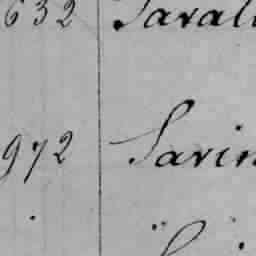 632 Saval
972 Savin